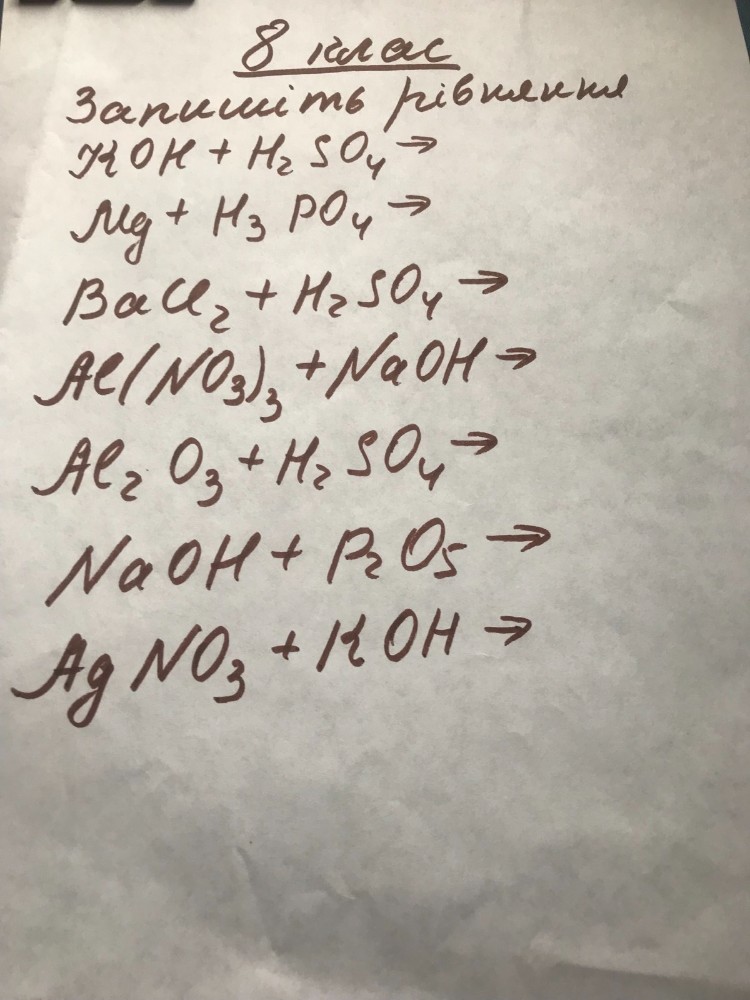 8 клас
Запишіть рівняння
KOH + H₂SO₄ →
Mg + H₃PO₄ →
BaCl₂ + H₂SO₄ →
Al(NO₃)₃ + NaOH →
Al₂O₃ + H₂SO₄ →
NaOH + P₂O₅ →
AgNO₃ + KOH →